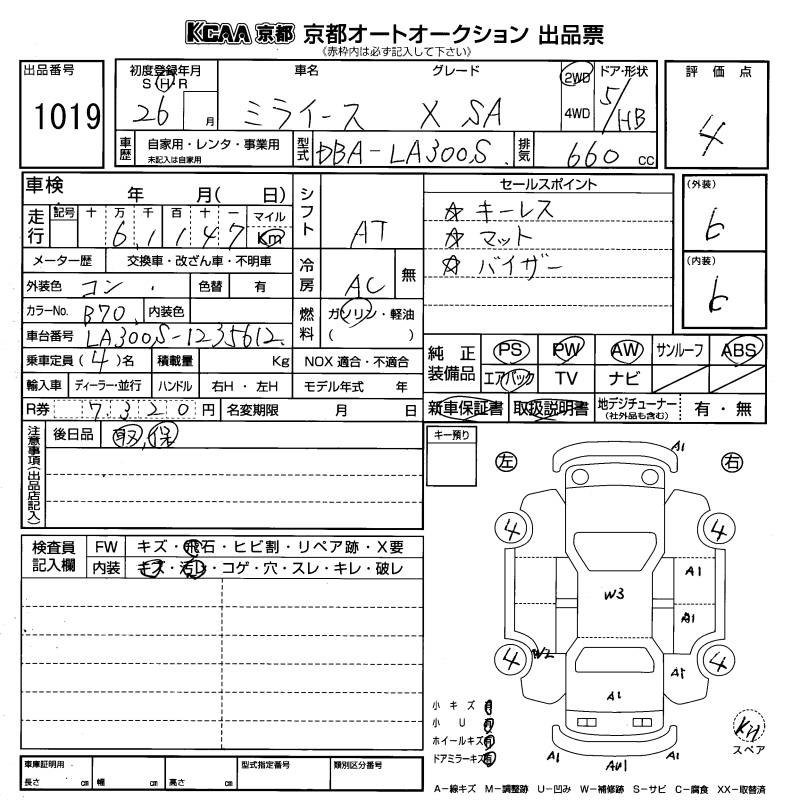 KCAA 京都 京都オートオークション 出品票
(赤枠内は必ず記入して下さい)
出品番号
1019
初度登録年月
S H R
26 月
車名
ミライース
グレード
X SA
2WD
4WD
ドア・形状
5/HB
評価点
4
車歴
自家用・レンタ・事業用
未記入は自家用
型式
DBA-LA300S
排気
660 cc
車検 年 月( 日)
走行
記号 十 万 千 百 十 一 マイル
6 1 1 4 7 Km
メーター歴 交換車・改ざん車・不明車
外装色 コン 色替 有
カラーNo. B70 内装色
車台番号 LA300S-1235612
乗車定員 (4)名 積載量 Kg
輸入車 ディーラー・並行 ハンドル 右H・左H
R券 7320円 名変期限 月 日
シフト AT
冷房 AC 無
燃料 ガソリン・軽油
( )
NOX 適合・不適合
モデル年式 年
セールスポイント
☆ キーレス
☆ マット
☆ バイザー
(外装)
6
(内装)
6
純正装備品
PS PW AW サンルーフ ABS
エアバック TV ナビ
新車保証書 取扱説明書 地デジチューナー
(社外品も含む)
有・無
注意事項(出品店記入)
後日品 取 保
キー預り
検査員記入欄
FW キズ・飛石・ヒビ割・リペア跡・X要
内装 キズ・汚レ・コゲ・穴・スレ・キレ・破レ
左 右
A1
4 4
A1
W3
A1
W2
4 4
A1
A1
A1 A1
小キズ 有
小U 有
ホイールキズ 有
ドアミラーキズ 有
スペア
車庫証明用
長さ cm 幅 cm 高さ cm
型式指定番号
類別区分番号
A-線キズ M-調整跡 U-凹み W-補修跡 S-サビ C-腐食 XX-取替済